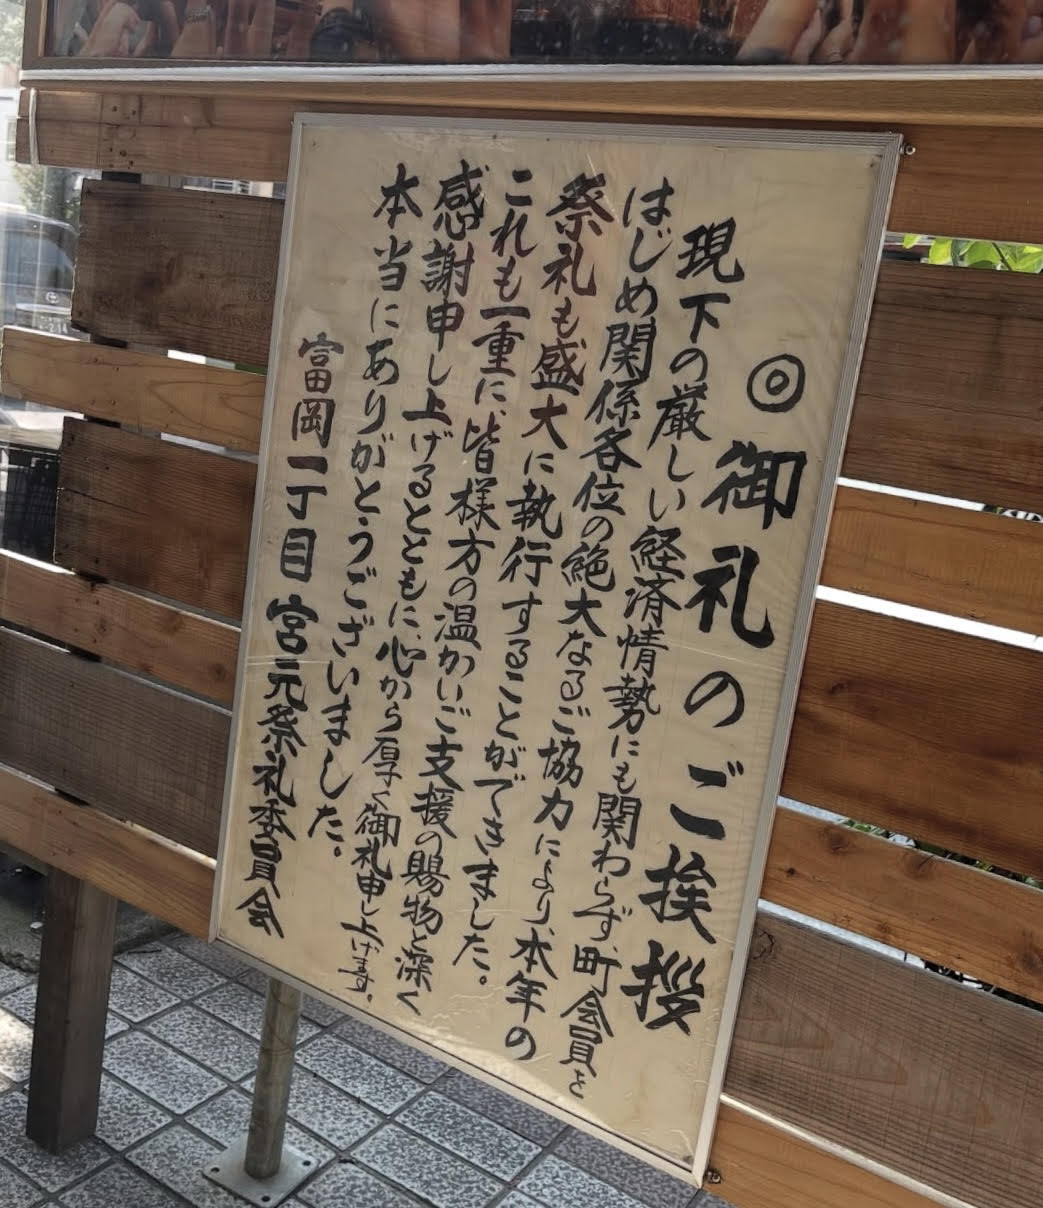 ◎御礼のご挨拶
現下の厳しい経済情勢にも関わらず、町会員を
はじめ関係各位の絶大なるご協力により、本年の
祭礼も盛大に執行することができました。
これも一重に、皆様方の温かいご支援の賜物と深く
感謝申し上げるとともに、心から厚く御礼申し上げます。
本当にありがとうございました。
富岡一丁目 宮元祭礼委員会